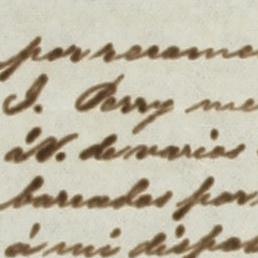 por recome
J. Perry me
á V. de varios
barcados por
á mi dispos